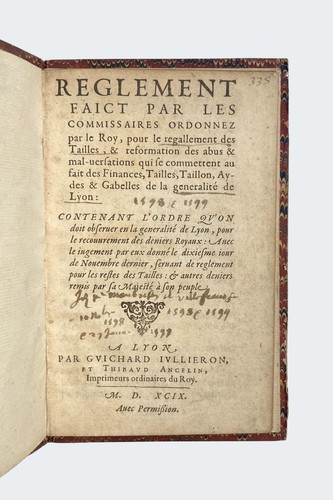 335
REGLEMENT
FAICT PAR LES
COMMISSAIRES ORDONNEZ
par le Roy, pour le regallement des
Tailles, & reformation des abus &
mal-uersations qui se commettent au
fait des Finances, Tailles, Taillon, Ay-
des & Gabelles de la generalité de
Lyon:
1598 & 1599
CONTENANT L'ORDRE QV'ON
doit obseruer en la generalité de Lyon, pour
le recouurement des deniers Royaux: Auec
le iugement par eux donné le dixiesme iour
de Nouembre dernier, seruant de reglement
pour les restes des Tailles: & autres deniers
remis par sa Maiesté à son peuple
1598 & 1599
1598
1598
A LYON,
PAR GVICHARD IVLLIERON,
ET THIBAVD ANCELIN,
Imprimeurs ordinaires du Roy.
M. D. XCIX.
Auec Permission.